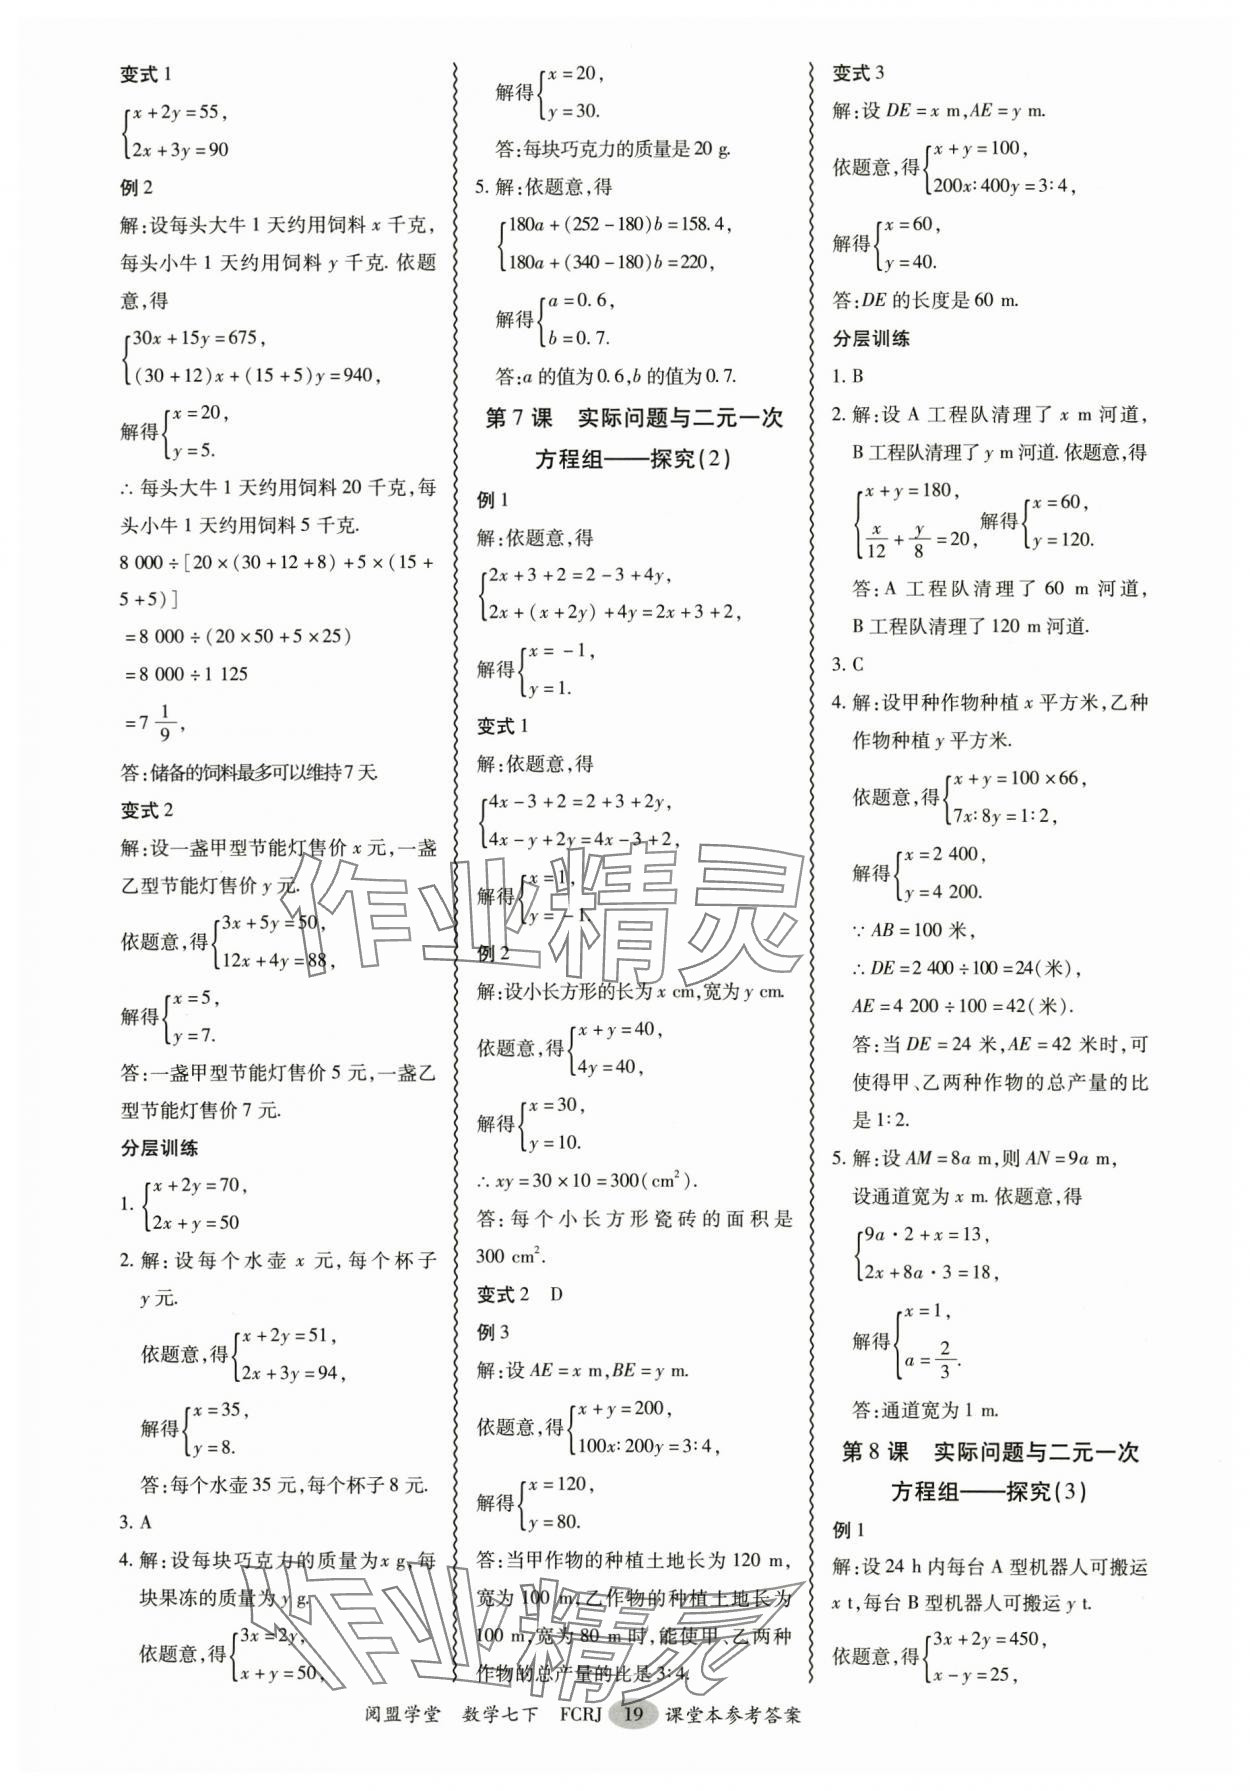 变式 1
x+2y=55,
2x+3y=90
例 2
解:设每头大牛 1 天约用饲料 x 千克,
每头小牛 1 天约用饲料 y 千克. 依题
意,得
30x+15y=675,
(30+12)x+(15+5)y=940,
解得 x=20,
y=5.
∴ 每头大牛 1 天约用饲料 20 千克,每
头小牛 1 天约用饲料 5 千克.
8 000÷[20×(30+12+8)+5×(15+
5+5)]
=8 000÷(20×50+5×25)
=8 000÷1 125
=7 1/9,
答:储备的饲料最多可以维持 7 天.
变式 2
解:设一盏甲型节能灯售价 x 元,一盏
乙型节能灯售价 y 元.
依题意,得 3x+5y=50,
12x+4y=88,
解得 x=5,
y=7.
答:一盏甲型节能灯售价 5 元,一盏乙
型节能灯售价 7 元.
分层训练
1. x+2y=70,
2x+y=50
2. 解:设每个水壶 x 元,每个杯子
y 元.
依题意,得 x+2y=51,
2x+3y=94,
解得 x=35,
y=8.
答:每个水壶 35 元,每个杯子 8 元.
3. A
4. 解:设每块巧克力的质量为 x g,每
块果冻的质量为 y g.
依题意,得 3x=2y,
x+y=50,
解得 x=20,
y=30.
答:每块巧克力的质量是 20 g.
5. 解:依题意,得
180a+(252-180)b=158.4,
180a+(340-180)b=220,
解得 a=0.6,
b=0.7.
答:a 的值为 0.6,b 的值为 0.7.
第 7 课 实际问题与二元一次
方程组——探究(2)
例 1
解:依题意,得
2x+3+2=2-3+4y,
2x+(x+2y)+4y=2x+3+2,
解得 x=-1,
y=1.
变式 1
解:依题意,得
4x-3+2=2+3+2y,
4x-y+2y=4x-3+2,
解得 x=1,
y=-1.
例 2
解:设小长方形的长为 x cm,宽为 y cm.
依题意,得 x+y=40,
4y=40,
解得 x=30,
y=10.
∴ xy=30×10=300(cm²).
答:每个小长方形瓷砖的面积是
300 cm².
变式 2 D
例 3
解:设 AE=x m,BE=y m.
依题意,得 x+y=200,
100x∶200y=3∶4,
解得 x=120,
y=80.
答:当甲作物的种植土地长为 120 m,
宽为 100 m,乙作物的种植土地长为
100 m,宽为 80 m 时,能使甲、乙两种
作物的总产量的比是 3∶4.
变式 3
解:设 DE=x m,AE=y m.
依题意,得 x+y=100,
200x∶400y=3∶4,
解得 x=60,
y=40.
答:DE 的长度是 60 m.
分层训练
1. B
2. 解:设 A 工程队清理了 x m 河道,
B 工程队清理了 y m 河道. 依题意,得
x+y=180,
x/12+y/8=20, 解得 x=60,
y=120.
答:A 工程队清理了 60 m 河道,
B 工程队清理了 120 m 河道.
3. C
4. 解:设甲种作物种植 x 平方米,乙种
作物种植 y 平方米.
依题意,得 x+y=100×66,
7x∶8y=1∶2,
解得 x=2 400,
y=4 200.
∵ AB=100 米,
∴ DE=2 400÷100=24(米),
AE=4 200÷100=42(米).
答:当 DE=24 米,AE=42 米时,可
使得甲、乙两种作物的总产量的比
是 1∶2.
5. 解:设 AM=8a m,则 AN=9a m,
设通道宽为 x m. 依题意,得
9a·2+x=13,
2x+8a·3=18,
解得 x=1,
a=2/3.
答:通道宽为 1 m.
第 8 课 实际问题与二元一次
方程组——探究(3)
例 1
解:设 24 h 内每台 A 型机器人可搬运
x t,每台 B 型机器人可搬运 y t.
依题意,得 3x+2y=450,
x-y=25,
阅盟学堂 数学七下 FCRJ 19 课堂本参考答案
作业精灵
作业精灵